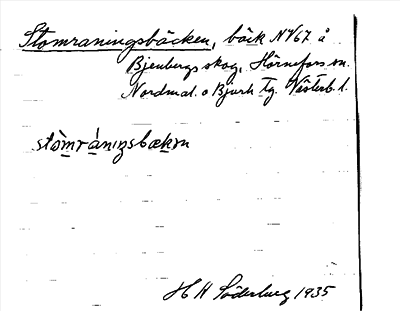 Stomraningsbäcken, bäck NV67 å
Bjenbergs skog, Hörnefors sn.
Nordmal. o Bjurh tg. Västerb. l.
stòmránıŋsbækɷn
H H Söderberg 1935